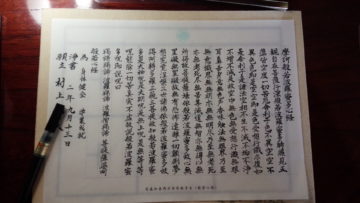 摩訶般若波羅蜜多心経
観自在菩薩行深般若波羅蜜多時照見五
蘊皆空度一切苦厄舎利子色不異空空不
異色色即是空空即是色受想行識亦復如
是舎利子是諸法空相不生不滅不垢不浄
不増不減是故空中無色無受想行識無眼
耳鼻舌身意無色声香味触法無眼界乃至
無意識界無無明亦無無明尽乃至無老死
亦無老死尽無苦集滅道無智亦無得以無
所得故菩提薩埵依般若波羅蜜多故心無
罣礙無罣礙故無有恐怖遠離一切顛倒夢
想究竟涅槃三世諸仏依般若波羅蜜多故
得阿耨多羅三藐三菩提故知般若波羅蜜
多是大神呪是大明呪是無上呪是無等等
呪能除一切苦真実不虚故説般若波羅蜜
多呪即説呪曰
羯諦羯諦波羅羯諦波羅僧羯諦菩提薩婆訶
般若心経
為 身体健全 学業成就
浄書 二年九月十三日
願主 村上